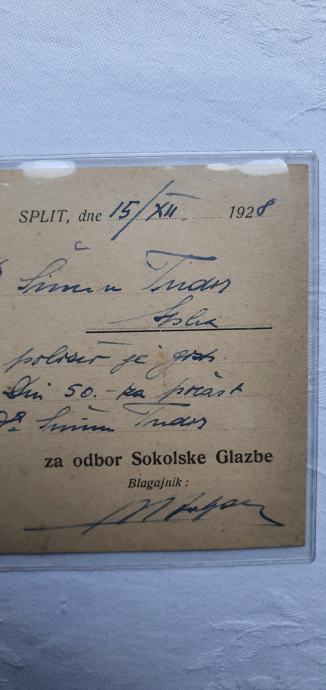 SPLIT, dne 15/XII. 1928
Šimun Tudor
Split
položio je gosp.
Din 50.- za počast
Šimun Tudor
za odbor Sokolske Glazbe
Blagajnik :